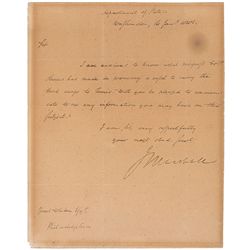 Department of State
Washington, 16 Jany 1801.
Sir
I am anxious to know what progress Col.
has made in procuring a ship to carry the
to Tunis. Will you be pleased to communi-
cate to me any information you may have on this
subject?
I am Sir very respectfully
your most obed servt
J Marshall
Esqr.
Philadelphia